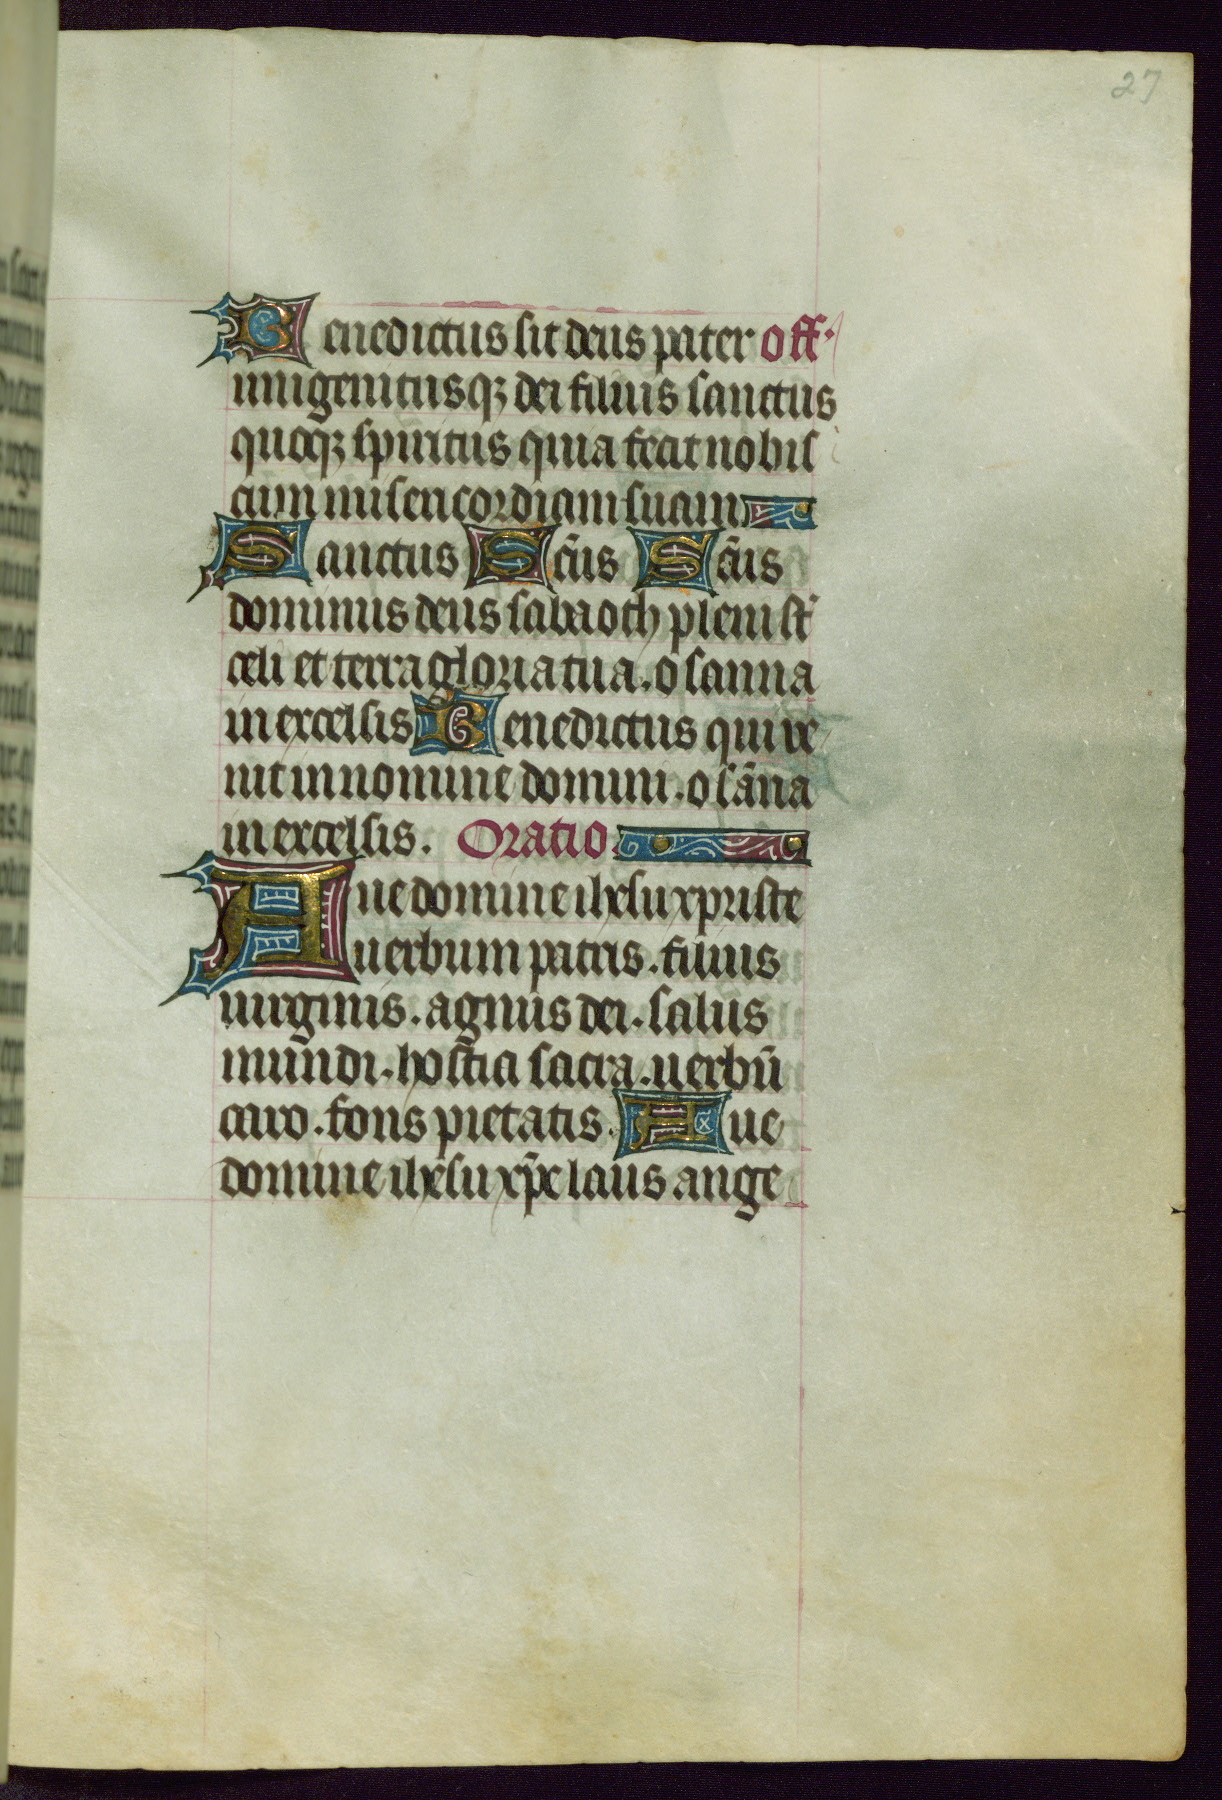 27
Benedictus sit deus pater off.
unigenitusqꝫ dei filius sanctus
quoqꝫ spiritus quia fecit nobis
cum misericordiam suam
Sanctus Sc̄us Sc̄us
dominus deus sabaoth pleni st̄
celi et terra gloria tua. osanna
in excelsis Benedictus qui ve
nit in nomine domini. osāna
in excelsis. Oratio.
Aue domine ihesu xpriste
uerbum patris. filius
uirginis. agnus dei. salus
mundi. hostia sacra. uerbū
caro. fons pietatis. Aue
domine ihesu xp̄e laus ange